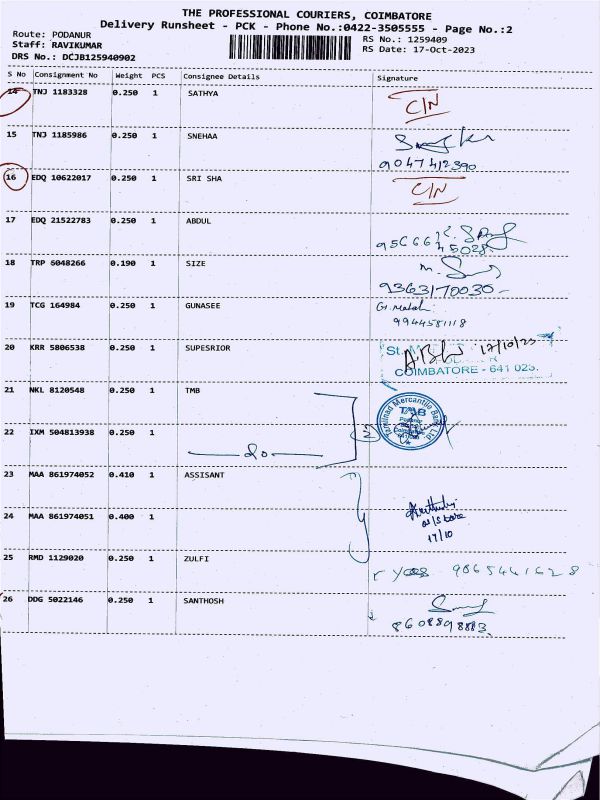 THE PROFESSIONAL COURIERS, COIMBATORE
Delivery Runsheet - PCK - Phone No.:0422-3505555 - Page No.:2
Route: PODANUR RS No.: 1259409
Staff: RAVIKUMAR RS Date: 17-Oct-2023
DRS No.: DCJB125940902
S No Consignment No Weight PCS Consignee Details Signature
14 TNJ 1183328 0.250 1 SATHYA C/N
15 TNJ 1185986 0.250 1 SNEHAA
9047412390
16 EDQ 10622017 0.250 1 SRI SHA C/N
17 EDQ 21522783 0.250 1 ABDUL
95666
45028
18 TRP 6048266 0.190 1 SIZE
9363170030
19 TCG 164984 0.250 1 GUNASEE
9944581118
20 KRR 5806538 0.250 1 SUPESRIOR 17/10/23
COIMBATORE - 641 023.
21 NKL 8120548 0.250 1 TMB
Tamilnad Mercantile Bank Ltd.
22 IXM 504813938 0.250 1 do
23 MAA 861974052 0.410 1 ASSISANT
24 MAA 861974051 0.400 1
17/10
25 RMD 1129020 0.250 1 ZULFI
9865441628
26 DDG 5022146 0.250 1 SANTHOSH
8608898883